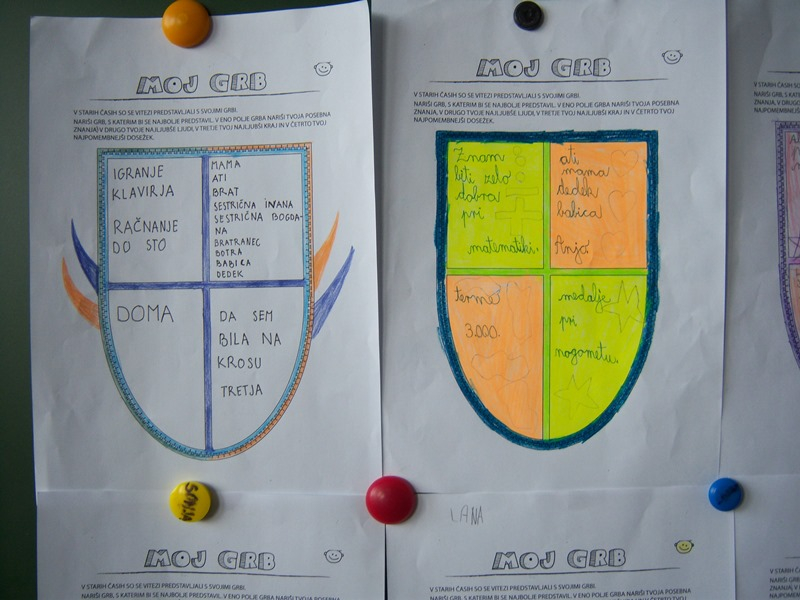 MOJ GRB
V STARIH ČASIH SO SE VITEZI PREDSTAVLJALI S SVOJIMI GRBI.
NARIŠI GRB, S KATERIM BI SE NAJBOLJE PREDSTAVIL. V ENO POLJE GRBA NARIŠI TVOJA POSEBNA
ZNANJA, V DRUGO TVOJE NAJLJUBŠE LJUDI, V TRETJE TVOJ NAJLJUBŠI KRAJ IN V ČETRTO TVOJ
NAJPOMEMBNEJŠI DOSEŽEK.
IGRANJE
KLAVIRJA
RAČNANJE
DO STO
MAMA
ATI
BRAT
SESTRIČNA IVANA
SESTRIČNA BOGDA-
NA
BRATRANEC
BOTRA
BABICA
DEDEK
DOMA
DA SEM
BILA NA
KROSU
TRETJA
MOJ GRB
V STARIH ČASIH SO SE VITEZI PREDSTAVLJALI S SVOJIMI GRBI.
NARIŠI GRB, S KATERIM BI SE NAJBOLJE PREDSTAVIL. V ENO POLJE GRBA NARIŠI TVOJA POSEBNA
ZNANJA, V DRUGO TVOJE NAJLJUBŠE LJUDI, V TRETJE TVOJ NAJLJUBŠI KRAJ IN V ČETRTO TVOJ
NAJPOMEMBNEJŠI DOSEŽEK.
Znam
biti zelo
dobra
pri
matematiki.
ati
mama
dedek
babica
Anja
terme
3.000.
medalje
pri
nogometu.
LANA
MOJ GRB
V STARIH ČASIH SO SE VITEZI PREDSTAVLJALI S SVOJIMI GRBI.
NARIŠI GRB, S KATERIM BI SE NAJBOLJE PREDSTAVIL. V ENO POLJE GRBA NARIŠI TVOJA POSEBNA
MOJ GRB
V STARIH ČASIH SO SE VITEZI PREDSTAVLJALI S SVOJIMI GRBI.
NARIŠI GRB, S KATERIM BI SE NAJBOLJE PREDSTAVIL. V ENO POLJE GRBA NARIŠI TVOJA POSEBNA